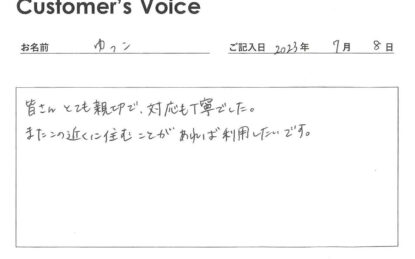 Customer's Voice
お名前 ゆっこ ご記入日 2023年 7月 8日
皆さんとても親切で、対応も丁寧でした。
またこの近くに住むことがあれば利用したいです。